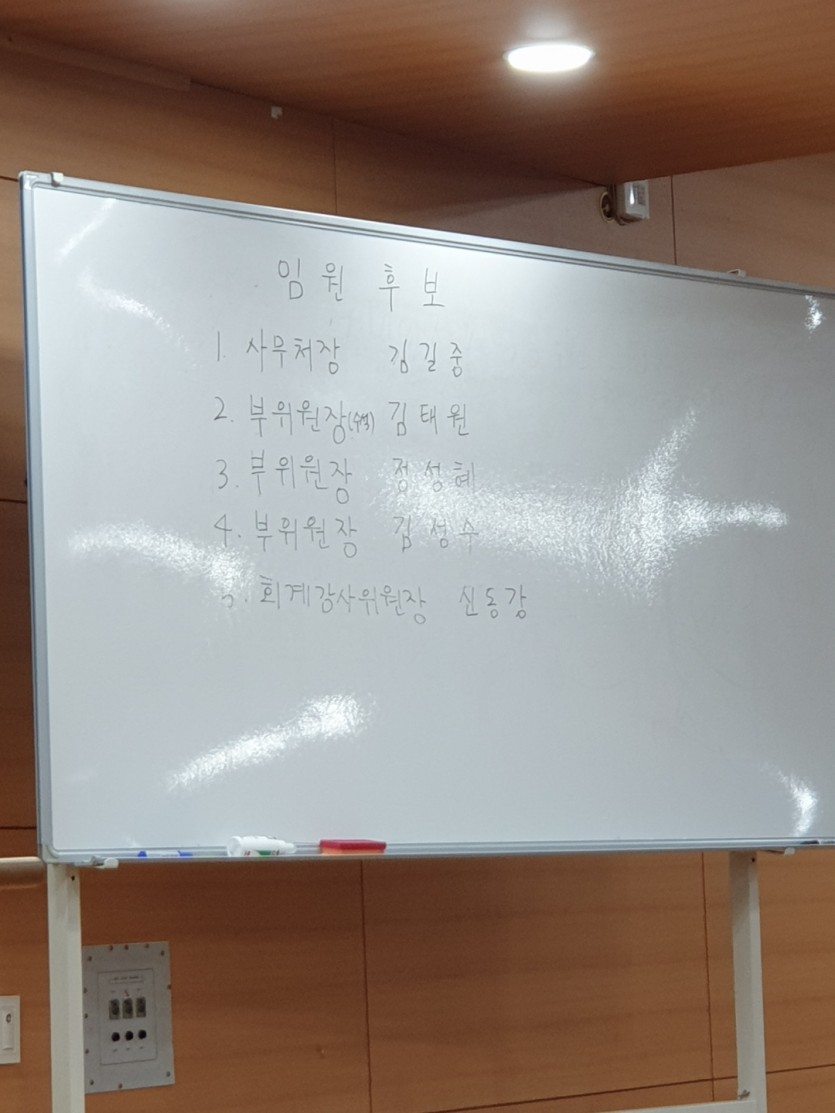 임원 후보
1. 사무처장 김길중
2. 부위원장(수석) 김태원
3. 부위원장 정성혜
4. 부위원장 김성수
5. 회계감사위원장 신동강